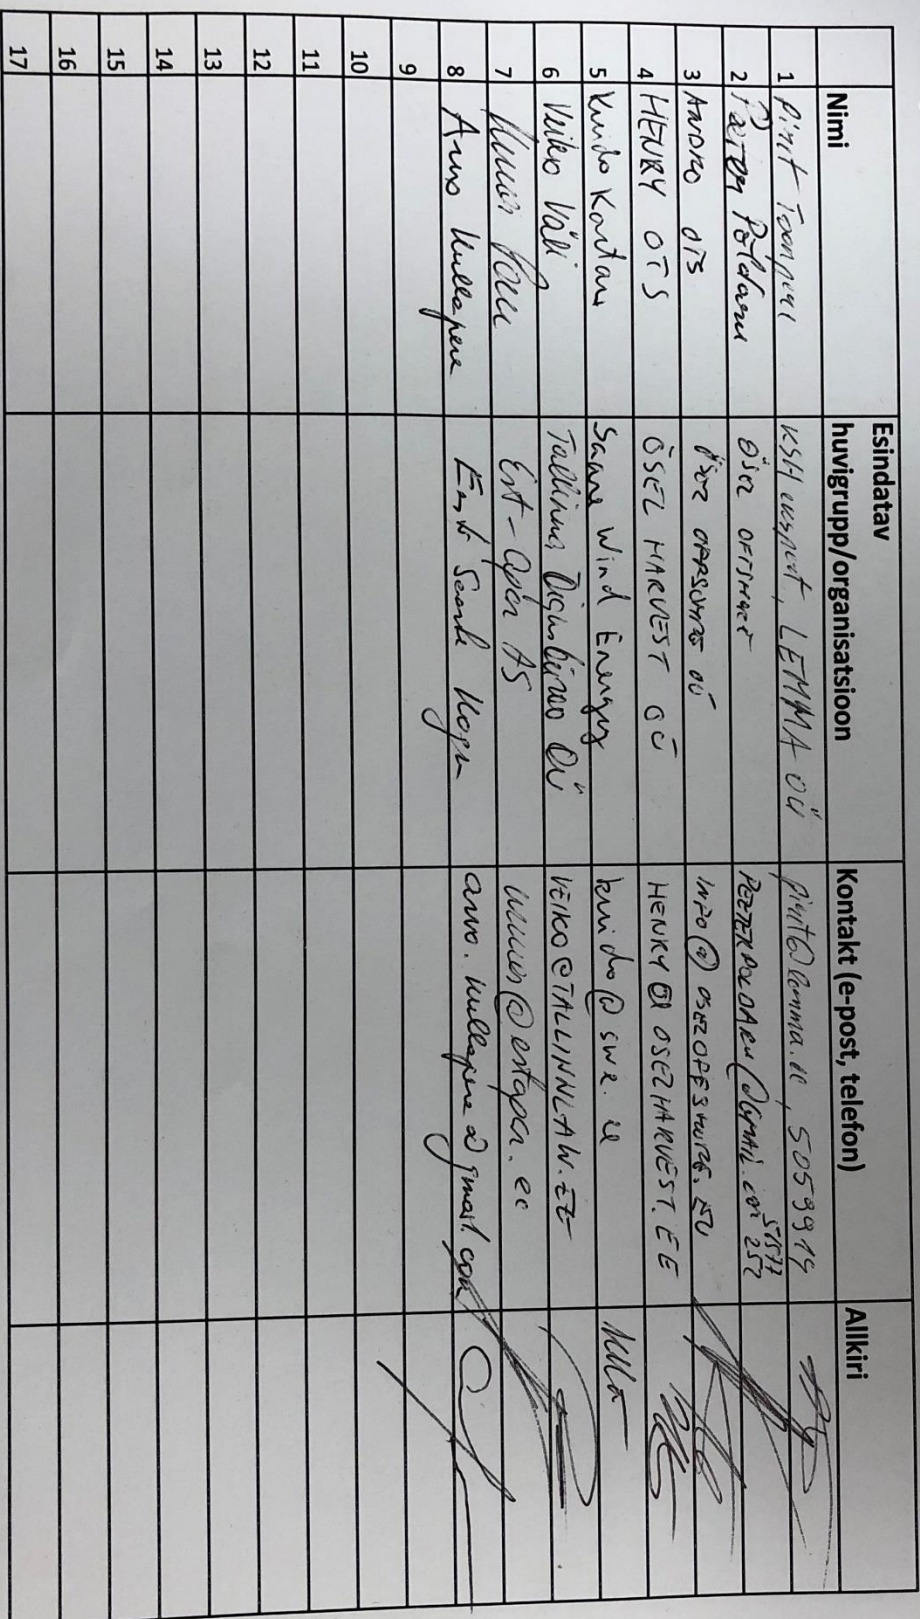 Nimi Esindatav huvigrupp/organisatsioon Kontakt (e-post, telefon) Allkiri
1 Piret Toonpere KSH ekspert, LEMMA OÜ piret@lemma.ee, 5059914
2 Peeter Põldaru ÖSEL OFFSHORE PEETERPOLDARU@GMAIL.com 51577252
3 ANDRO OTS ÖSEL OFFSHORE OÜ INFO@OSELOFFSHORE.EU
4 HENRY OTS ÖSEL HARVEST OÜ HENRY@OSELHARVEST.EE
5 Kuido Kartau Saare Wind Energy kuido@swe.ee
6 Veiko Väli Tallinna Õigusbüroo OÜ VEIKO@TALLINNLAW.EE
7 Est-Agar AS @estagar.ee
8 Arvo Kullapere Eesti Kogu arvo.kullapere@gmail.com
9
10
11
12
13
14
15
16
17